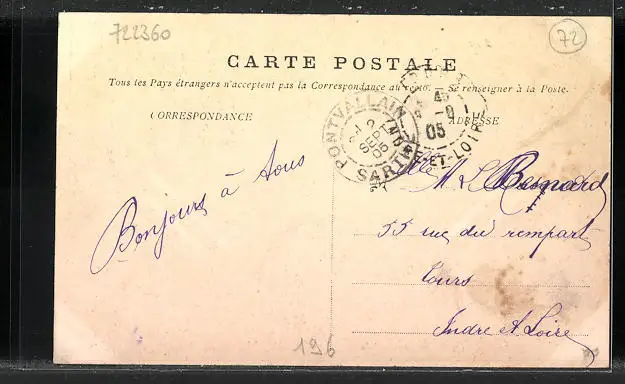 722360
72
CARTE POSTALE
Tous les Pays étrangers n'acceptent pas la Correspondance au recto. Se renseigner à la Poste.
CORRESPONDANCE
ADRESSE
PONTVALLAIN
2
SEPT
05
SARTHE
45
05
INDRE-ET-LOIRE
Bonjours à tous
Besnard
55 rue du rempart
Tours
Indre et Loire
196